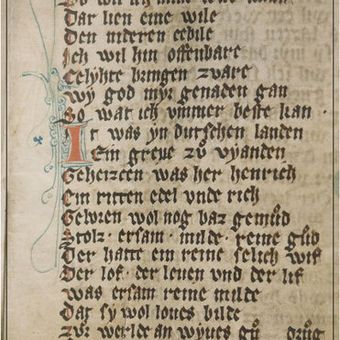 Dar lien eine wile
Den nideren
Ich wil hin offenbare
Celyhte bringen zware
wy god myr genaden gan
So wat ich ymmer beste kan
It was yn dutschen landen
Ein greue zů vyanden
Geheizen was her henrich
Ein ritter edel unde rich
Geboren wol nog baz gemůd
Stolz · ersam · milde · reine gůd
Der hatte ein reine selich wif
Der lof · der leuen und der lif
was ersam reine milde
Daz sy wol loues bilde
Zůr werlde an wyues gů drůg